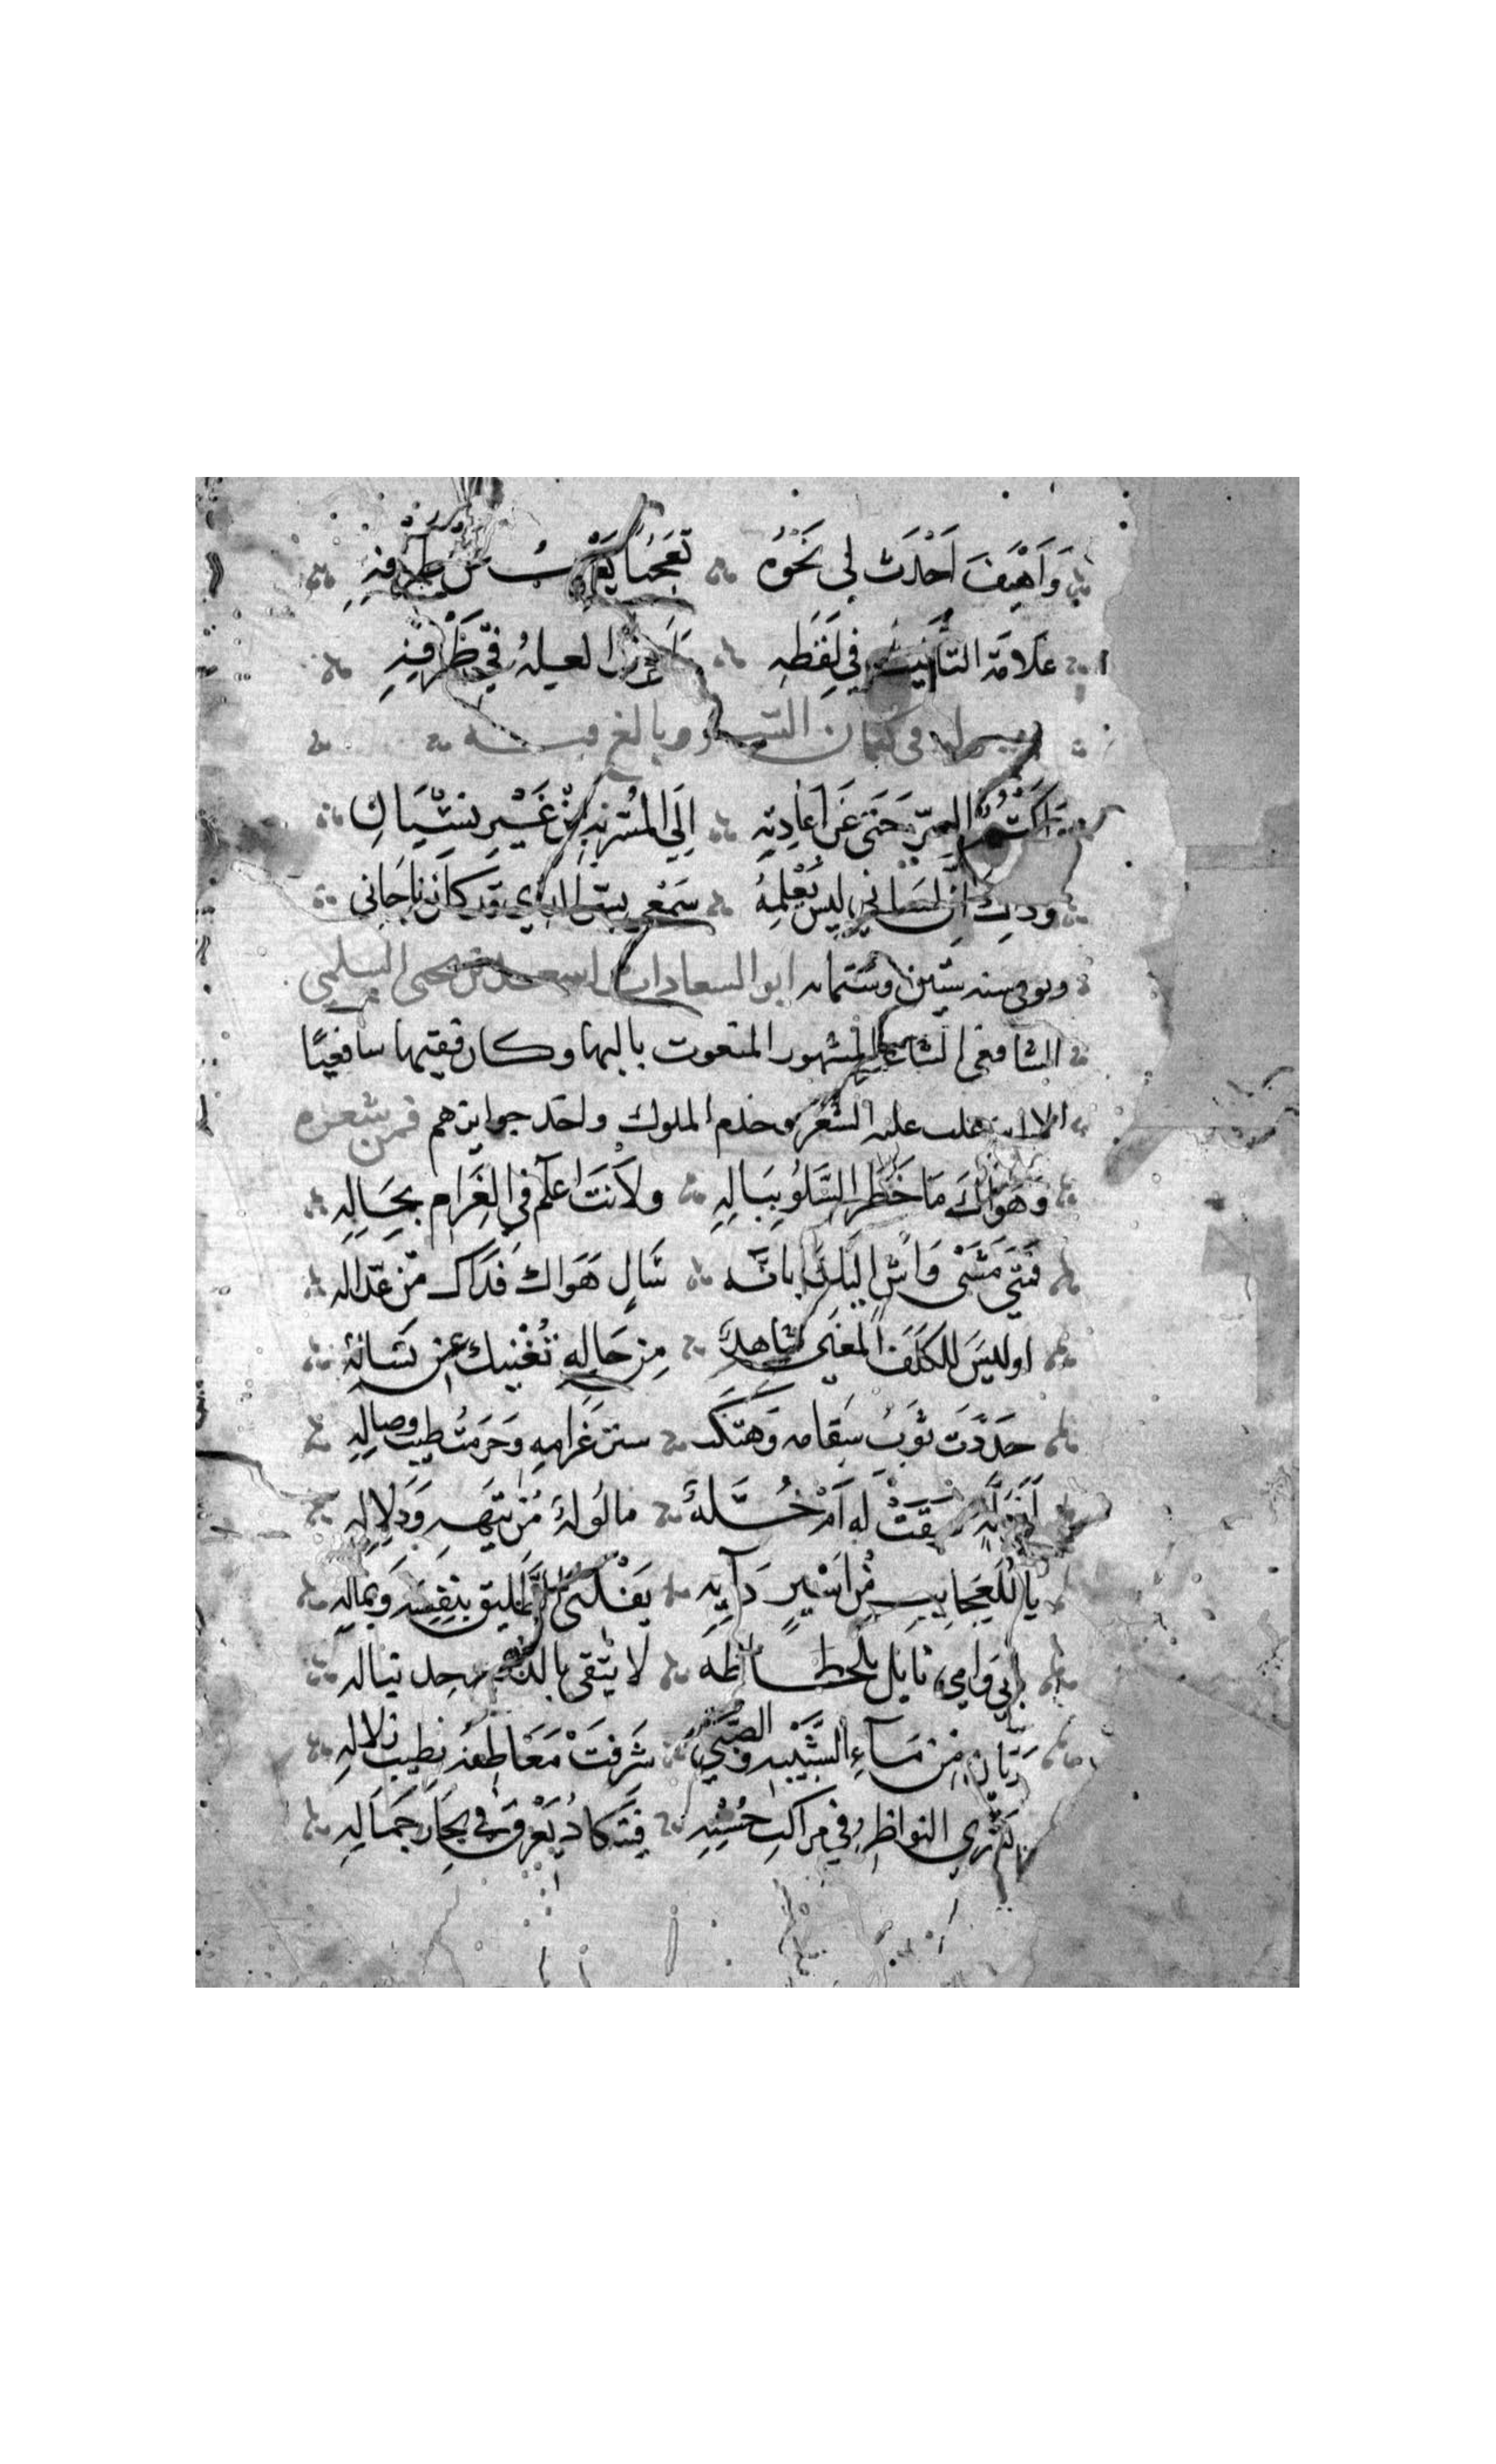 وَاَهْيَفَ اَحْدَثَ لي نَحْوُه تَعَجُّبًا يُعْرِبُ عن ظرفهِ
عَلامَة التأنيث في لَفْظِهِ واحرف العلة في طَرفهِ
في كتمان السر وبالغ فيه
اكتم السِرّ حَتى عَن اعادتِهِ اِلَى المُسَرِّ بِهِ مِنْ غَيْرِ نسْيَانِ
وذلك أن لسَاني ليس يُعْلِمُهُ سَمْعي بسر الذي قد كان ناجَاني
وتوفي سنه ستين وستمايه ابو السعادات اسعد بن يحيى السلمي
الشافعي الشاعر المشهور المنعوت بالبها وكان فقيها شافعيًا
الا انه غلب عليه الشعر وخدم الملوك واخذ جوايزهم فمن شعره
وَهَوَاكَ مَا خَطَر السَّلوُ بِبَالِهِ ولأنتَ اعلَم في الغَرام بحَالِهِ
فَمَتَى مَشَى وَاشٍ اليك بانّه سَالٍ هَوَاك فَذاك من عذاله
اوليسَ للكَلَف المُعنى شاهدٌ مِن حَالِهِ تُغْنيك عن تَسْآلهِ
حَدَّدتَ ثَوبَ سَقامه وَهَتَكتَ ستر غَرامِهِ وَحَرمتَ طيب وصالِهِ
أفزلة سَبَقَتْ لَه اَمْ خُلةٌ مالوفةٌ مِن تيههِ وَدَلالِهِ
يا للعَجايِبِ مِن اَسْيرٍ دَابِهِ يَفْدي الطليق بنَفْسِه وَبمالِهِ
بابي وامي نابل بلحاظه لا يتقى بالدرع حد نباله
رَيّان من مَآءِ الشَّبيبه والصِّبَى شَرقَتْ مَعَاطفهُ بطِيب زلالِهِ
تسْري النواظر في مراكب حُسْنِهِ فَتَكادُ يَغْرق في بحَار جَمَالِهِ